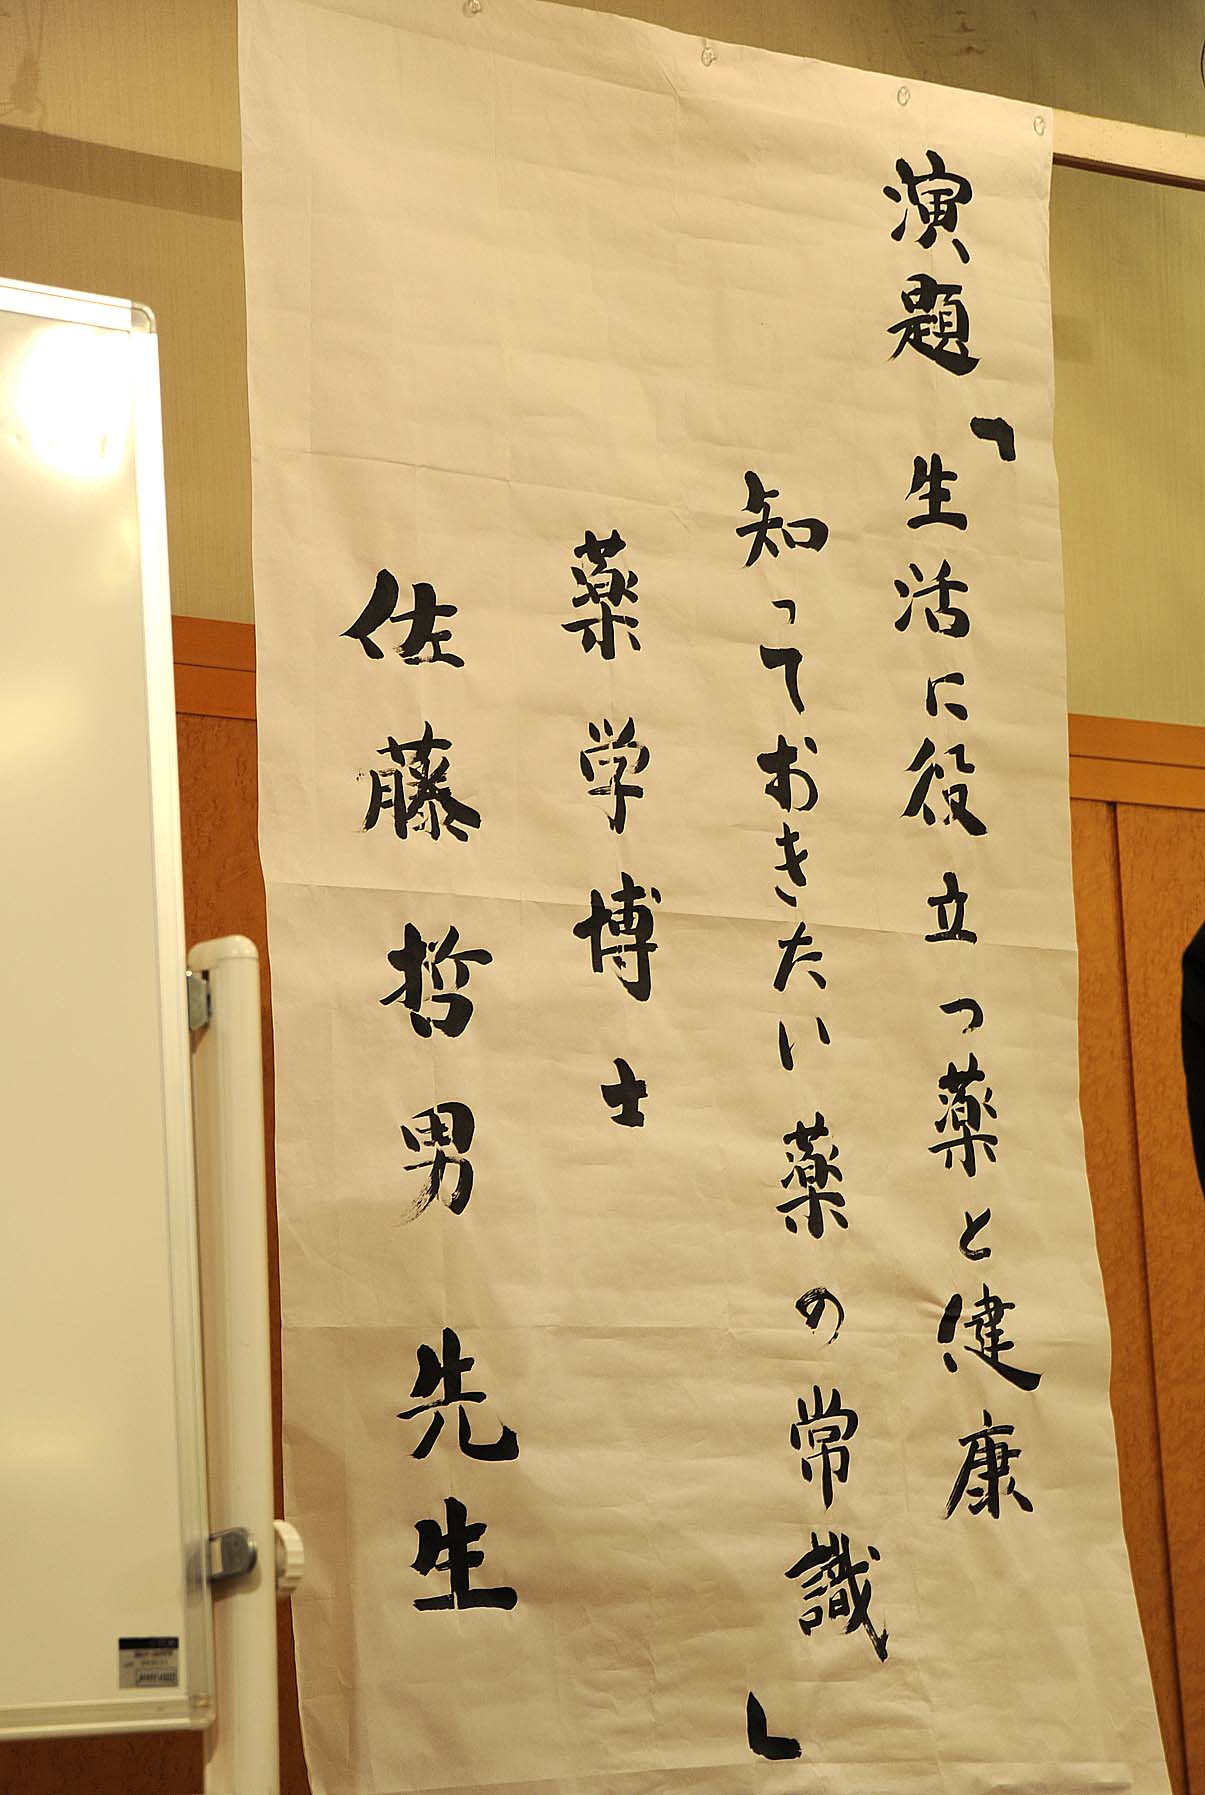 演題「生活に役立つ薬と健康
知っておきたい薬の常識」
薬学博士
佐藤哲男先生